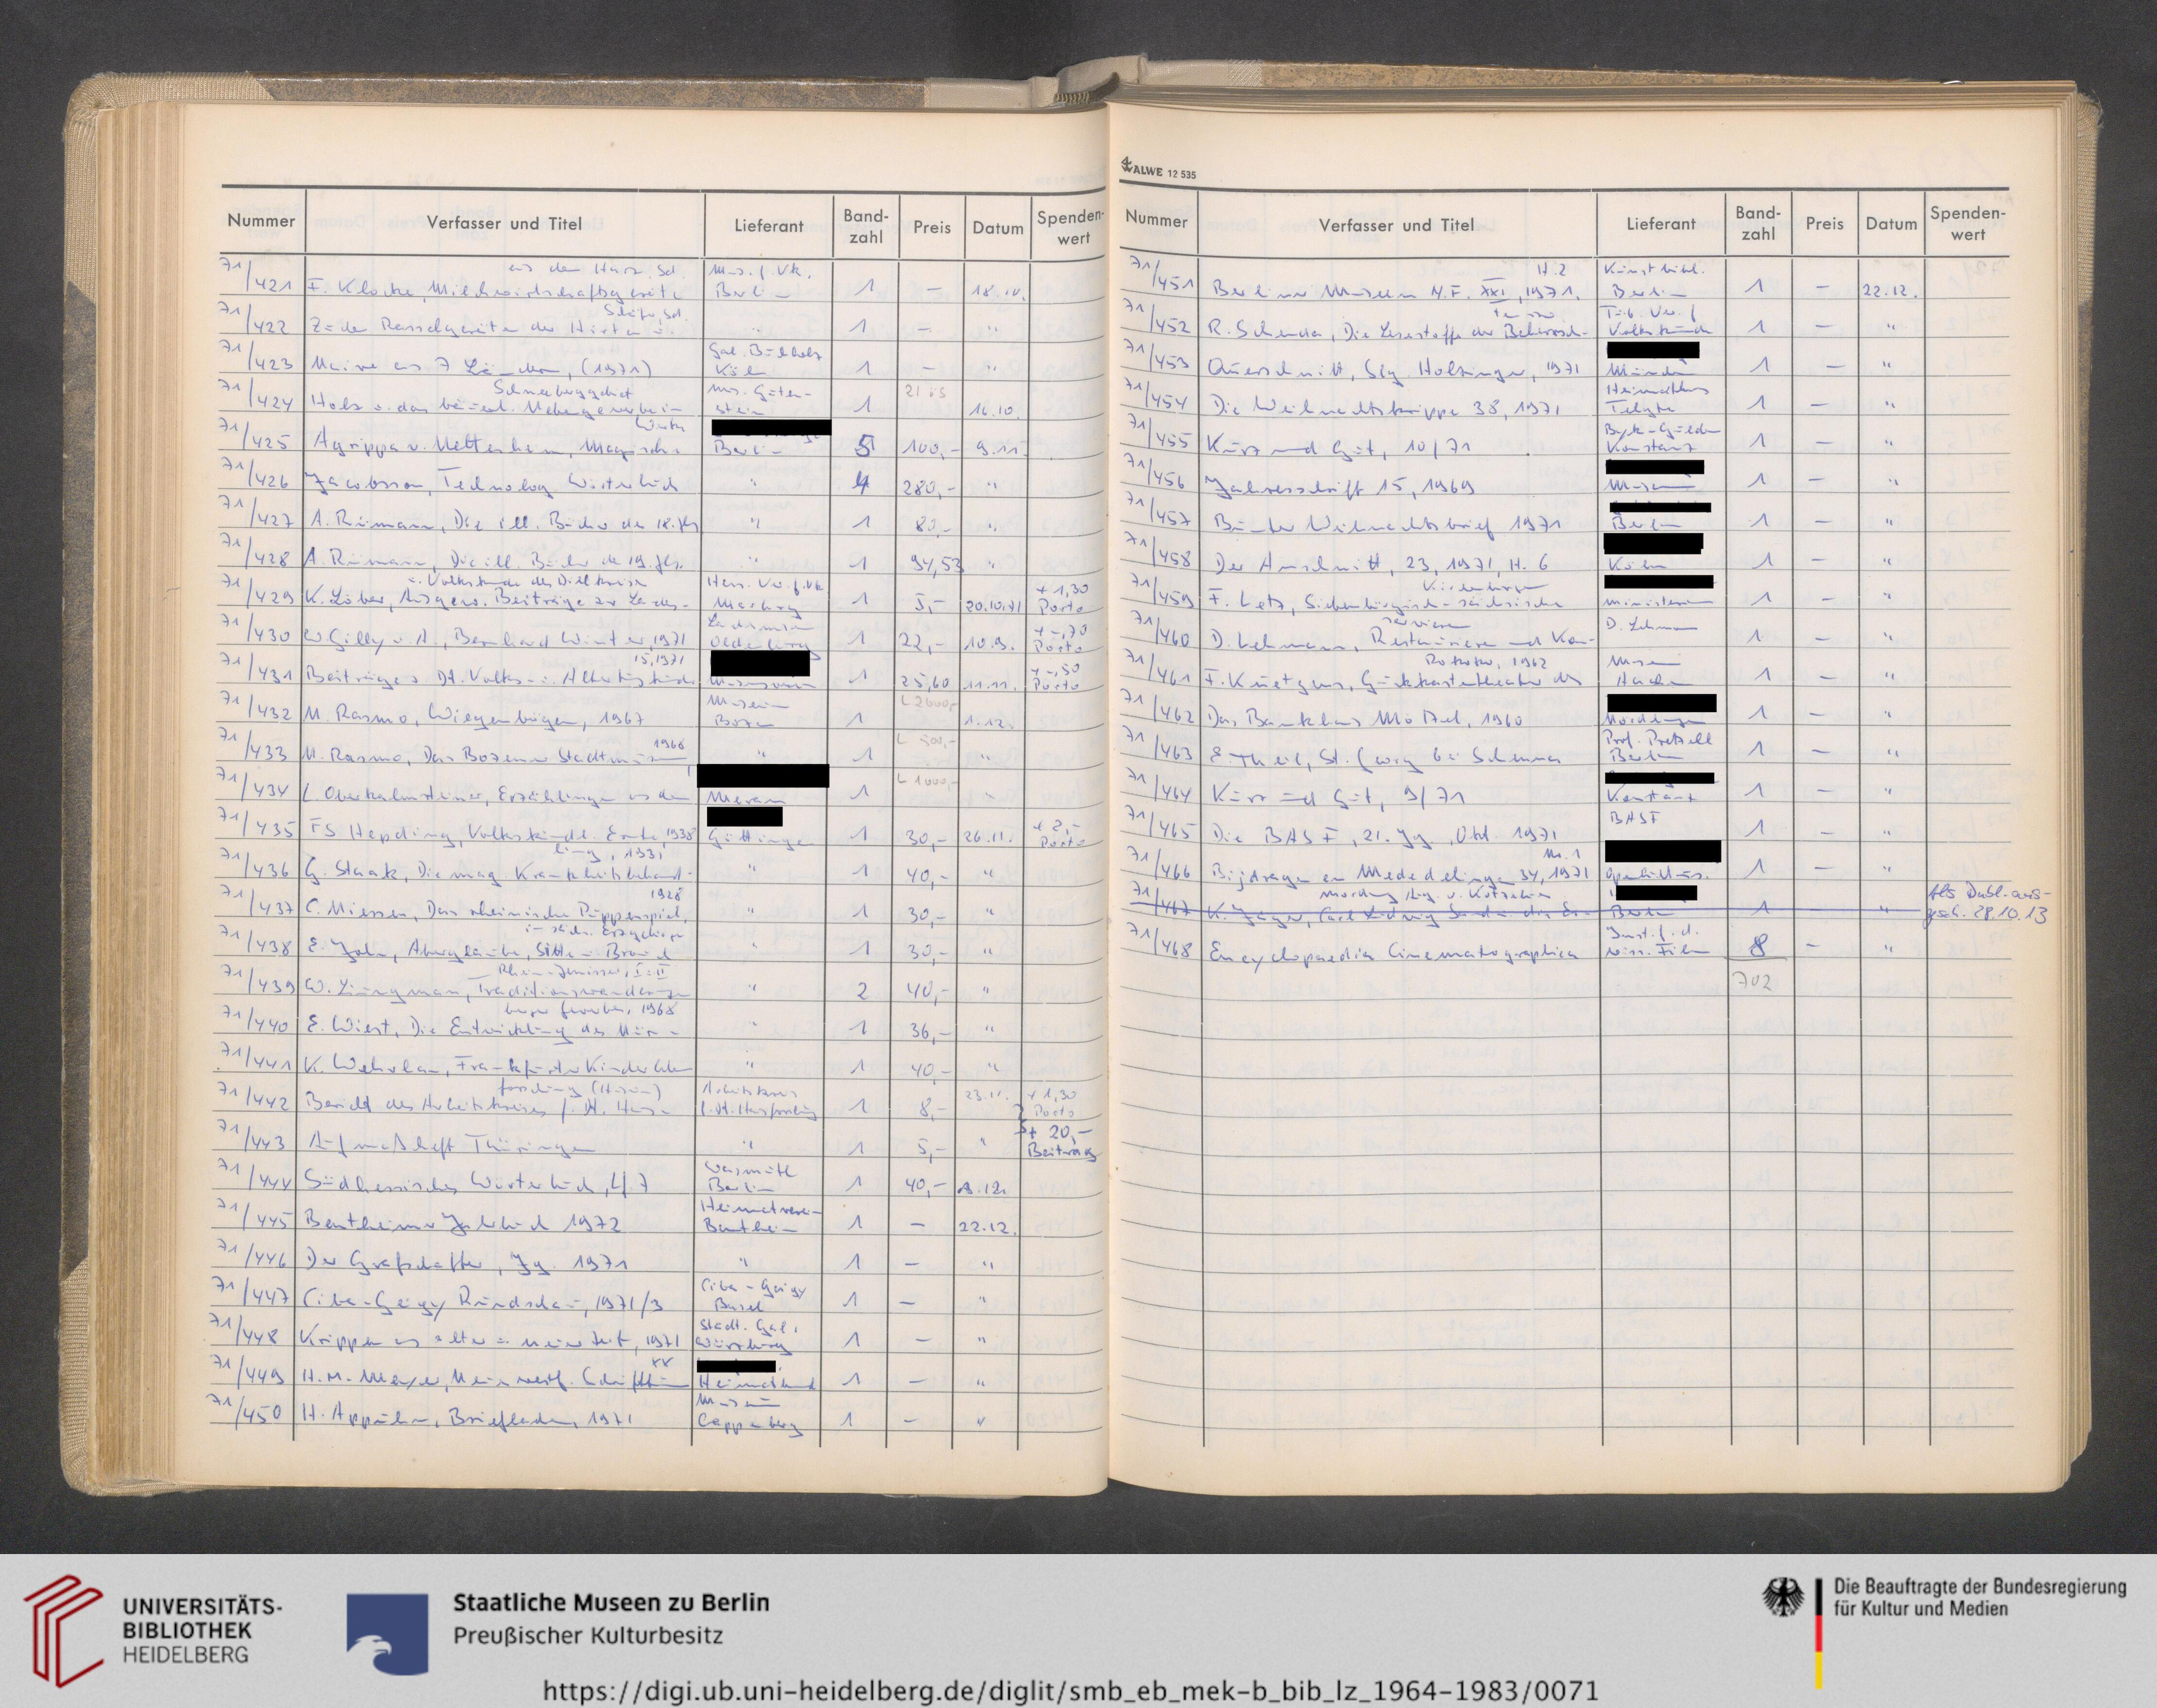 Nummer Verfasser und Titel Lieferant Band-zahl Preis Datum Spenden-wert
aus dem Harz, Sd. Mus. f. Vk.
71/421 F. Klocke, Milchwirtschaftsgeräte Berlin 1 — 18.10.
Schäfer, Sd.
71/422 Zu den Rasselgeräten der Hirten u. " 1 — "
Gal. Buchholz
71/423 Naive aus 7 Ländern, (1971) Köln 1 — "
Schneeberggebiet Mus. Guten-
71/424 Holz u. das bäuerl. Nebengewerbe im stein 1 16.10.
Werke
71/425 Agrippa v. Nettesheim, Magische Berlin 5 100,- 9.11.
71/426 Jacobsson, Technolog. Wörterbuch " 4 280,- "
71/427 A. Rümann, Die ill. Bücher des 18. Jhs " 1 80,- "
71/428 A. Rümann, Die ill. Bücher des 19. Jhs. " 1 94,53 "
u. Volkskunde des Dillkreises Hess. Ver. f. Vk + 1,30
71/429 K. Löber, Ausgew. Beiträge zur Landes- Marburg 1 5,- 20.10.71 Porto
+ -,70
71/430 W. Gilly u. A., Bernhard Winter, 1971 Oldenburg 1 22,- 10.9. Porto
15, 1971 + -,50
71/431 Beiträge z. Dt. Volks- u. Altertumskunde 1 25,60 11.11. Porto
Museum L 2600,-
71/432 N. Rasmo, Wiegenbögen, 1967 Bozen 1 1.12.
1968 L 500,-
71/433 N. Rasmo, Das Bozener Stadtmuseum " 1 "
L 1000,-
71/434 L. Oberkalmsteiner, Erzählungen aus dem Meran 1 "
+ 2,-
71/435 FS Hepding, Volkskundl. Ernte, 1938 Göttingen 1 30,- 26.11. Porto
lung, 1931
71/436 G. Staak, Die mag. Krankheitsbehand- " 1 40,- "
1928
71/437 C. Niessen, Das rheinische Puppenspiel, " 1 30,- "
im sächs. Erzgebirge
71/438 E. John, Aberglaube, Sitte u. Brauch " 1 30,- "
Rhein-Jenissei, I u. II
71/439 W. Liungman, Traditionswanderungen " 2 40,- "
berger Gewerbes, 1968
71/440 E. Wiest, Die Entwicklung des Nürn- " 1 36,- "
71/441 K. Wehrhan, Frankfurter Kinderleben " 1 40,- "
forschung (Husum) Arbeitskreis 23.11. + 1,30
71/442 Bericht des Arbeitskreises f. dt. Haus- f. dt. Hausforschung 1 8,- Porto
+ 20,-
71/443 Aufmaßheft Thüringen " 1 5,- " Beitrag
Wasmuth
71/444 Südhessisches Wörterbuch, Lf. 7 Berlin 1 40,- 8.12.
Heimatverein
71/445 Bentheimer Jahrbuch 1972 Bentheim 1 — 22.12.
71/446 Der Grafschafter, Jg. 1971 " 1 — "
Ciba-Geigy
71/447 Ciba-Geigy Rundschau, 1971/3 Basel 1 — "
Städt. Gal.
71/448 Krippen aus alter u. neuer Zeit, 1971 Würzburg 1 — "
XX
71/449 H. M. Meyer, Neues westf. Schrifttum Heimatbund 1 — "
Museum
71/450 H. Appuhn, Briefladen, 1971 Cappenberg 1 — "
ZALWE 12 535
Nummer Verfasser und Titel Lieferant Band-zahl Preis Datum Spenden-wert
H. 2 Kunstbibl.
71/451 Berliner Museen N. F. XXI, 1971. Berlin 1 — 22.12.
Tüb. Ver. f
71/452 R. Schenda, Die Lesestoffe der Beherrsch- Volkskunde 1 — "
71/453 Querschnitt, Slg. Holzinger, 1971 München 1 — "
Heimathaus
71/454 Die Weihnachtskrippe 38, 1971 Telgte 1 — "
Byk-Gulden
71/455 Kurz und Gut, 10/71 Konstanz 1 — "
71/456 Jahresschrift 15, 1969 Museum 1 — "
71/457 Bunter Weihnachtsbrief 1971 Berlin 1 — "
71/458 Der Anschnitt, 23, 1971, H. 6 Köln 1 — "
Kirchenburgen
71/459 F. Letz, Siebenbürgisch-sächsische Ministerium 1 — "
servieren D. Lehmann
71/460 D. Lehmann, Restaurieren und Kon- 1 — "
Rokoko, 1962 Museum
71/461 F. Kuetgens, Guckkastentheater des Aachen 1 — "
71/462 Das Bankhaus Mötzel, 1960 Nördlingen 1 — "
Prof. Pretzell
71/463 E. Theil, St. Georg bei Schenna Berlin 1 — "
71/464 Kurz und Gut, 9/71 Konstanz 1 — "
BASF
71/465 Die BASF, 21. Jg., Okt. 1971 1 — "
Nr. 1
71/466 Bijdragen en Mededelingen 34, 1971 Openluchtmus. 1 — "
mordung Aug. v. Kotzebue Als Dubl. aus-
71/467 K. Jäger, Carl Ludwig Sand u. die Er- Berlin 1 " gesch. 28.10.13
Inst. f. d.
71/468 Encyclopaedia Cinematographica wiss. Film 8 — "
702
UNIVERSITÄTS-
BIBLIOTHEK
HEIDELBERG
Staatliche Museen zu Berlin
Preußischer Kulturbesitz
Die Beauftragte der Bundesregierung
für Kultur und Medien
https://digi.ub.uni-heidelberg.de/diglit/smb_eb_mek-b_bib_lz_1964-1983/0071